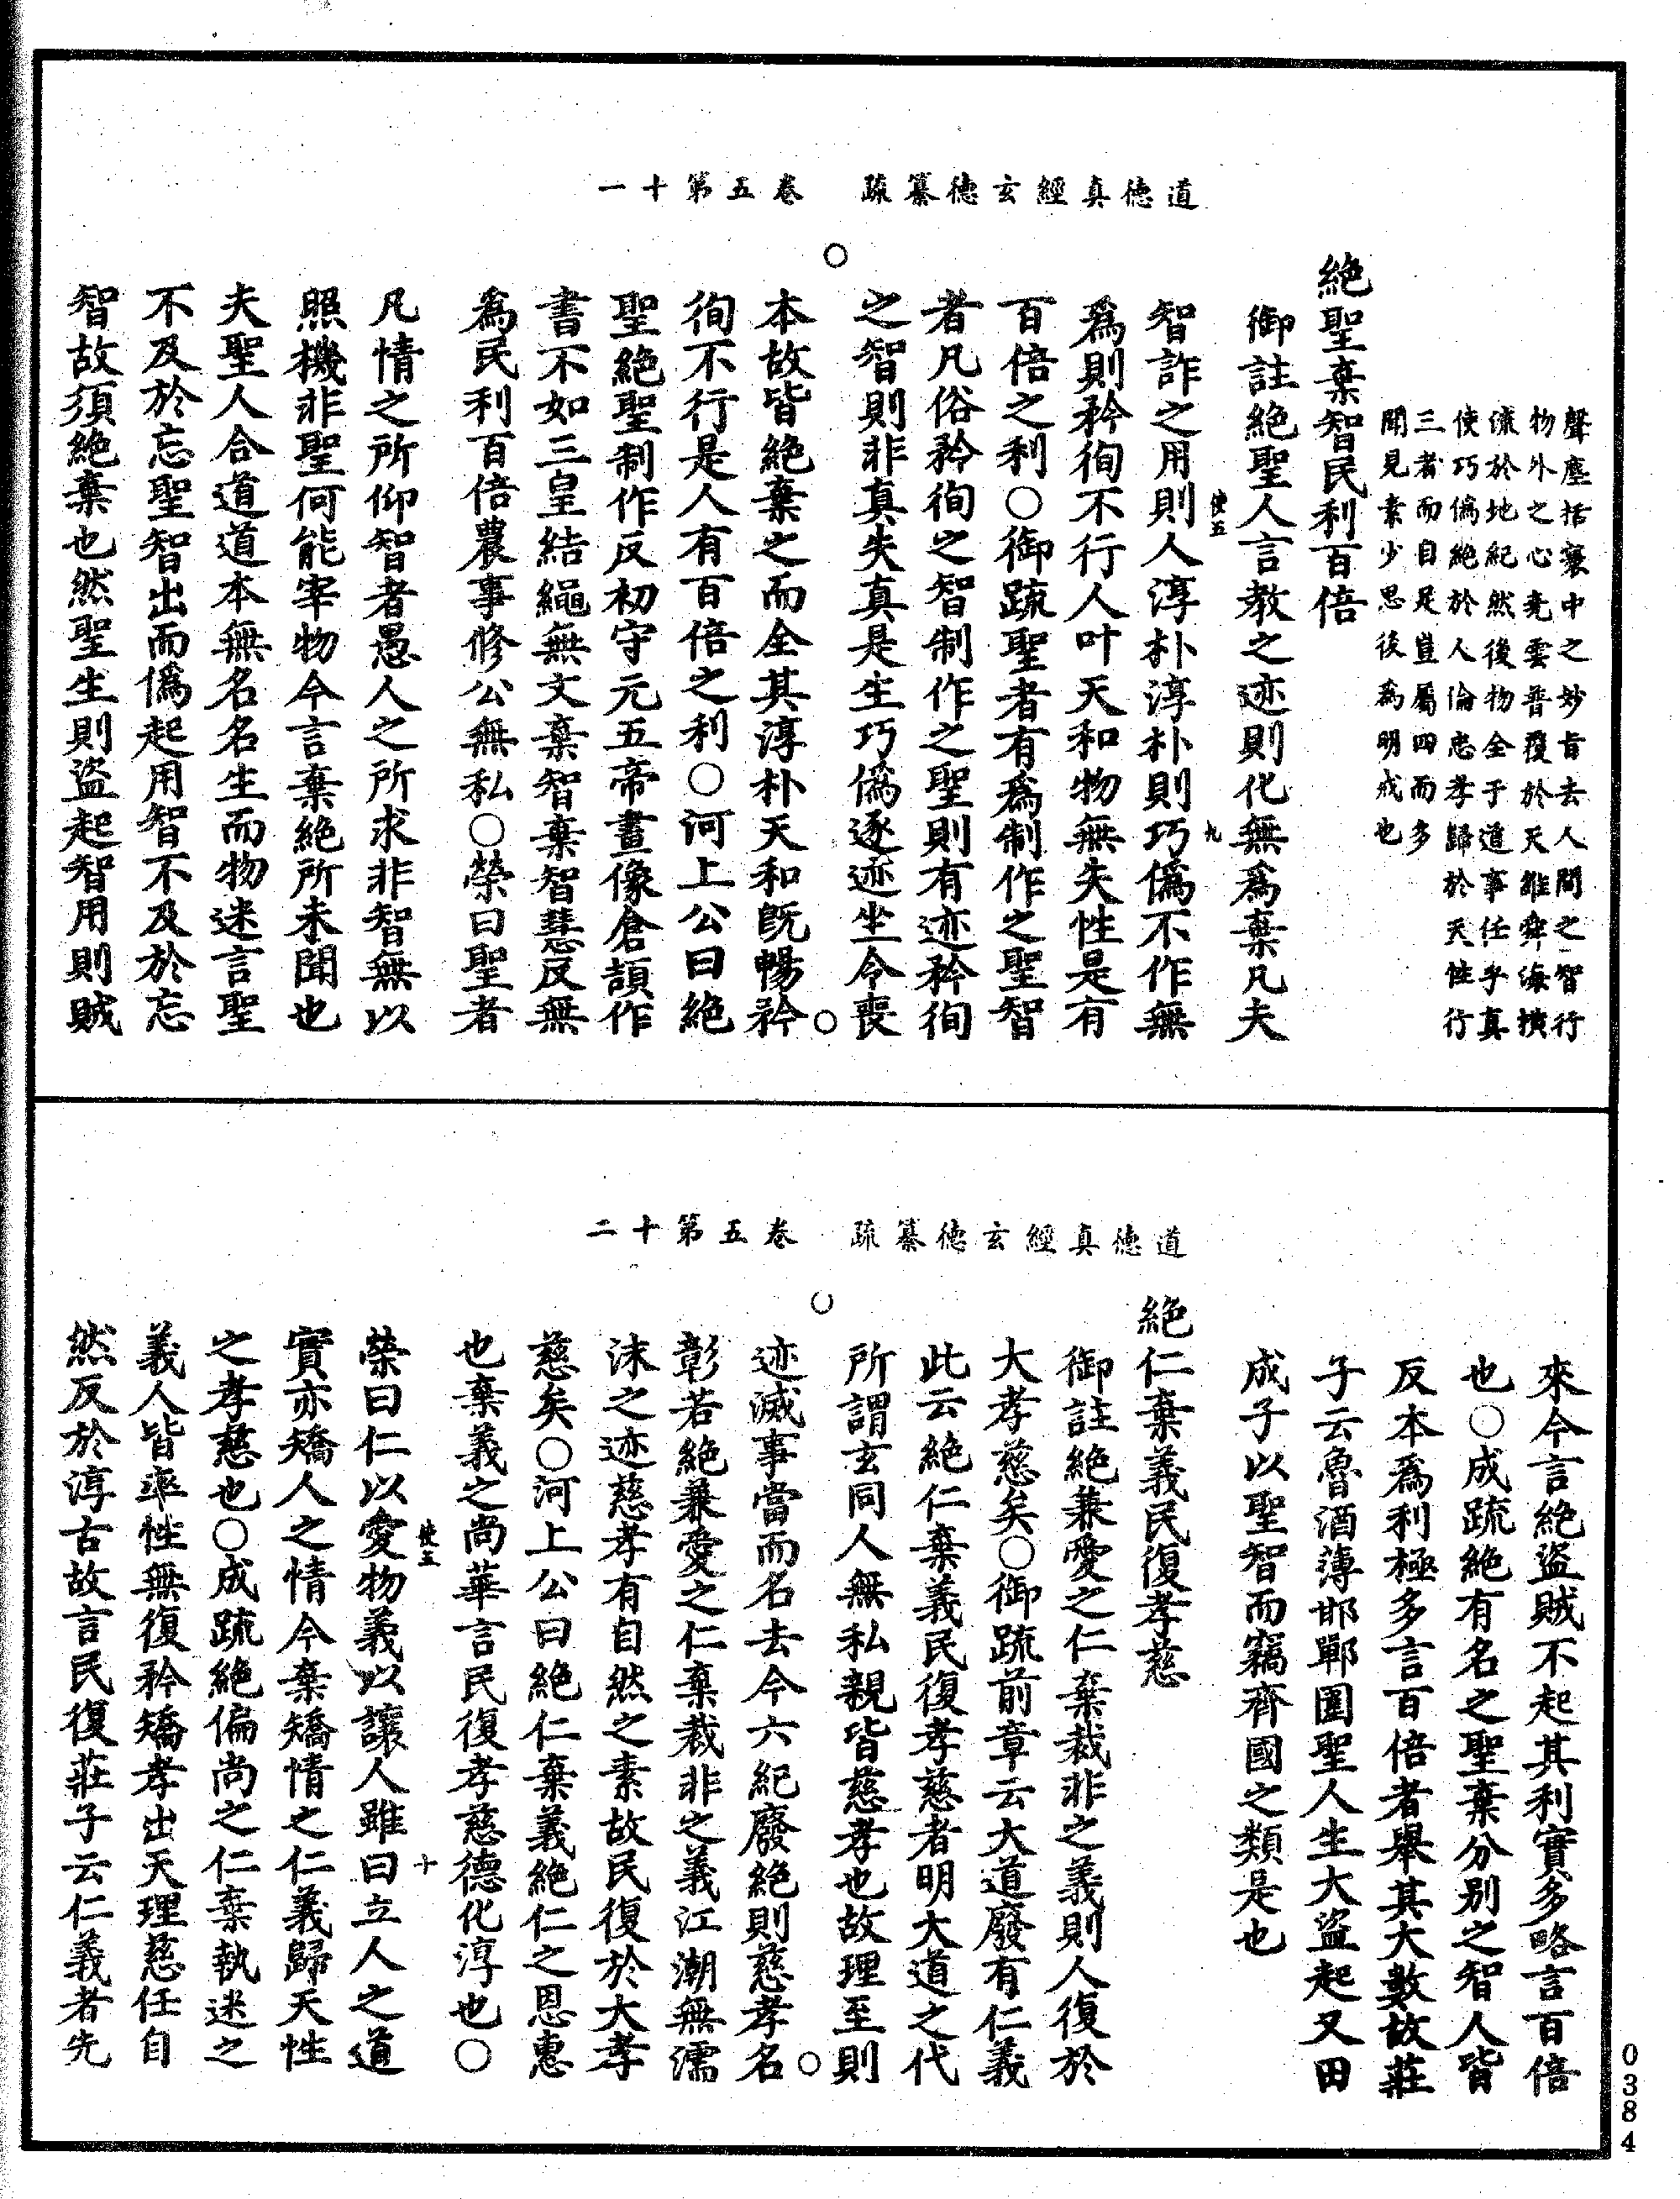 道德真經玄德纂疏　卷五第十一
聲塵括襄中之妙旨去人間之智行
物外之心堯雲普覆於天雖舜海橫
流於地紀然後物全于道事任乎真
使巧偽絕於人倫忠孝歸於天性行
三者而自足豈屬四而多
聞見素少思後為明戒也
絕聖棄智民利百倍
御註絕聖人言教之迹則化無為棄凡夫
智詐之用則人淳朴淳朴則巧偽不作無
為則矜徇不行人叶天和物無失性是有
百倍之利○御疏聖者有為制作之聖智
者凡俗矜徇之智制作之聖則有迹矜徇
之智則非真失真是生巧偽逐迹坐令喪
本故皆絕棄之而全其淳朴天和既暢矜
徇不行是人有百倍之利○河上公曰絕
聖絕聖制作反初守元五帝畫像倉頡作
書不如三皇結繩無文棄智棄智慧反無
為民利百倍農事修公無私○榮曰聖者
凡情之所仰智者愚人之所求非智無以
照機非聖何能宰物今言棄絕所未聞也
夫聖人合道道本無名名生而物迷言聖
不及於忘聖智出而偽起用智不及於忘
智故須絕棄也然聖生則盜起智用則賊
使五
九
道德真經玄德纂疏　卷五第十二
來今言絕盜賊不起其利實多略言百倍
也○成疏絕有名之聖棄分別之智人皆
反本為利極多言百倍者舉其大數故莊
子云魯酒薄邯鄲圍聖人生大盜起又田
成子以聖智而竊齊國之類是也
絕仁棄義民復孝慈
御註絕兼愛之仁棄裁非之義則人復於
大孝慈矣○御疏前章云大道廢有仁義
此云絕仁棄義民復孝慈者明大道之代
所謂玄同人無私親皆慈孝也故理至則
迹滅事當而名去今六紀廢絕則慈孝名
彰若絕兼愛之仁棄裁非之義江潮無濡
沫之迹慈孝有自然之素故民復於大孝
慈矣○河上公曰絕仁棄義絕仁之恩惠
也棄義之尚華言民復孝慈德化淳也○
榮曰仁以愛物義以讓人雖曰立人之道
實亦矯人之情今棄矯情之仁義歸天性
之孝慈也○成疏絕偏尚之仁棄執迷之
義人皆率性無復矜矯孝出天理慈任自
然反於淳古故言民復莊子云仁義者先
使五
十
0384